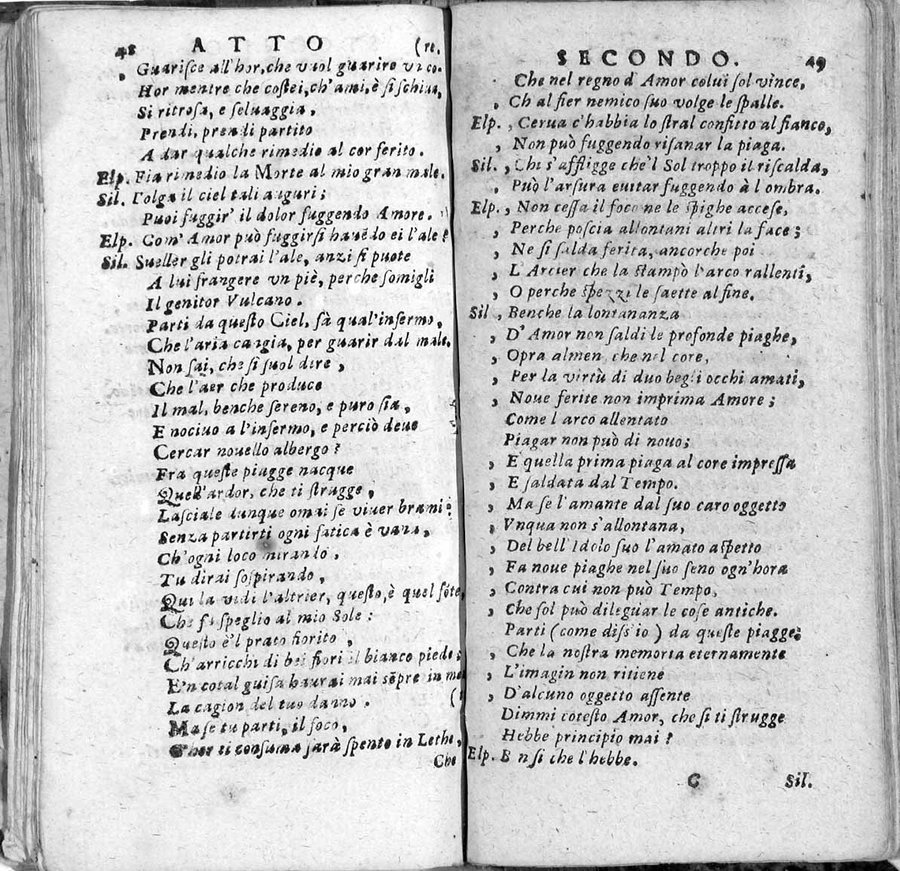 48 ATTO (re.
, Guarisce all'hor, che vuol guarire vico-
Hor mentre che costei, ch'ami, è sì schiua,
Si ritrosa, e seluaggia,
Prendi, prendi partito
A dar qualche rimedio al cor ferito.
Elp. Fia rimedio la Morte al mio gran male.
Sil. Tolga il ciel tali auguri;
Puoi fuggir' il dolor fuggendo Amore.
Elp. Com' Amor può fuggirsi hauẽdo ei l'ale?
Sil. Sueller gli potrai l'ale, anzi si puote
A lui frangere vn piè, perche somigli
Il genitor Vulcano.
Parti da questo Ciel, fà qual'infermo,
Che l'aria cangia, per guarir dal male.
Non sai, che si suol dire,
Che l'aer che produce
Il mal, benche sereno, e puro sia,
E nociuo a l'infermo, e perciò deue
Cercar nouello albergo?
Fra queste piagge nacque
Quell'ardor, che ti strugge,
Lasciale dunque omai se viuer brami:
Senza partirti ogni fatica è vana,
Ch'ogni loco mirando,
Tu dirai sospirando,
Qui la vidi l'altrier, questo, è quel fõte,
Che fù speglio al mio Sole:
Questo è'l prato fiorito,
Ch'arricchì di bei fiori il bianco piede;
E'n cotal guisa haurai mai sẽpre in me
La cagion del tuo danno. (t
Ma se tu parti, il foco,
C'hor ti consuma sarà spento in Lethe,
Che
SECONDO. 49
Che nel regno d'Amor colui sol vince,
, Ch'al fier nemico suo volge le spalle.
Elp. , Cerua c'habbia lo stral confitto al fianco,
, Non può fuggendo risanar la piaga.
Sil. , Chi s'affligge che'l Sol troppo il riscalda,
, Può l'arsura euitar fuggendo à l'ombra.
Elp. , Non cessa il foco ne le spighe accese,
, Perche poscia allontani altri la face;
, Ne si salda ferita, ancorche poi
, L'Arcier che la stampò l'arco rallenti,
, O perche spezzi le saette al fine.
Sil , Benche la lontananza
, D'Amor non saldi le profonde piaghe,
, Opra almen, che nel core,
, Per la virtù di duo begli occhi amati,
, Noue ferite non imprima Amore;
Come l'arco allentato
Piagar non può di nouo;
, E quella prima piaga al core impressa
, E saldata dal Tempo.
, Ma se l'amante dal suo caro oggetto
, Vnqua non s'allontana,
, Del bell'Idolo suo l'amato aspetto
, Fa noue piaghe nel suo seno ogn'hora
, Contra cui non può Tempo,
, Che sol può dileguar le cose antiche.
Parti (come diss'io) da queste piagge;
, Che la nostra memoria eternamente
, L'imagin non ritiene
, D'alcuno oggetto assente
Dimmi cotesto Amor, che sì ti strugge
Hebbe principio mai?
Elp. Ben si che l'hebbe.
C Sil.